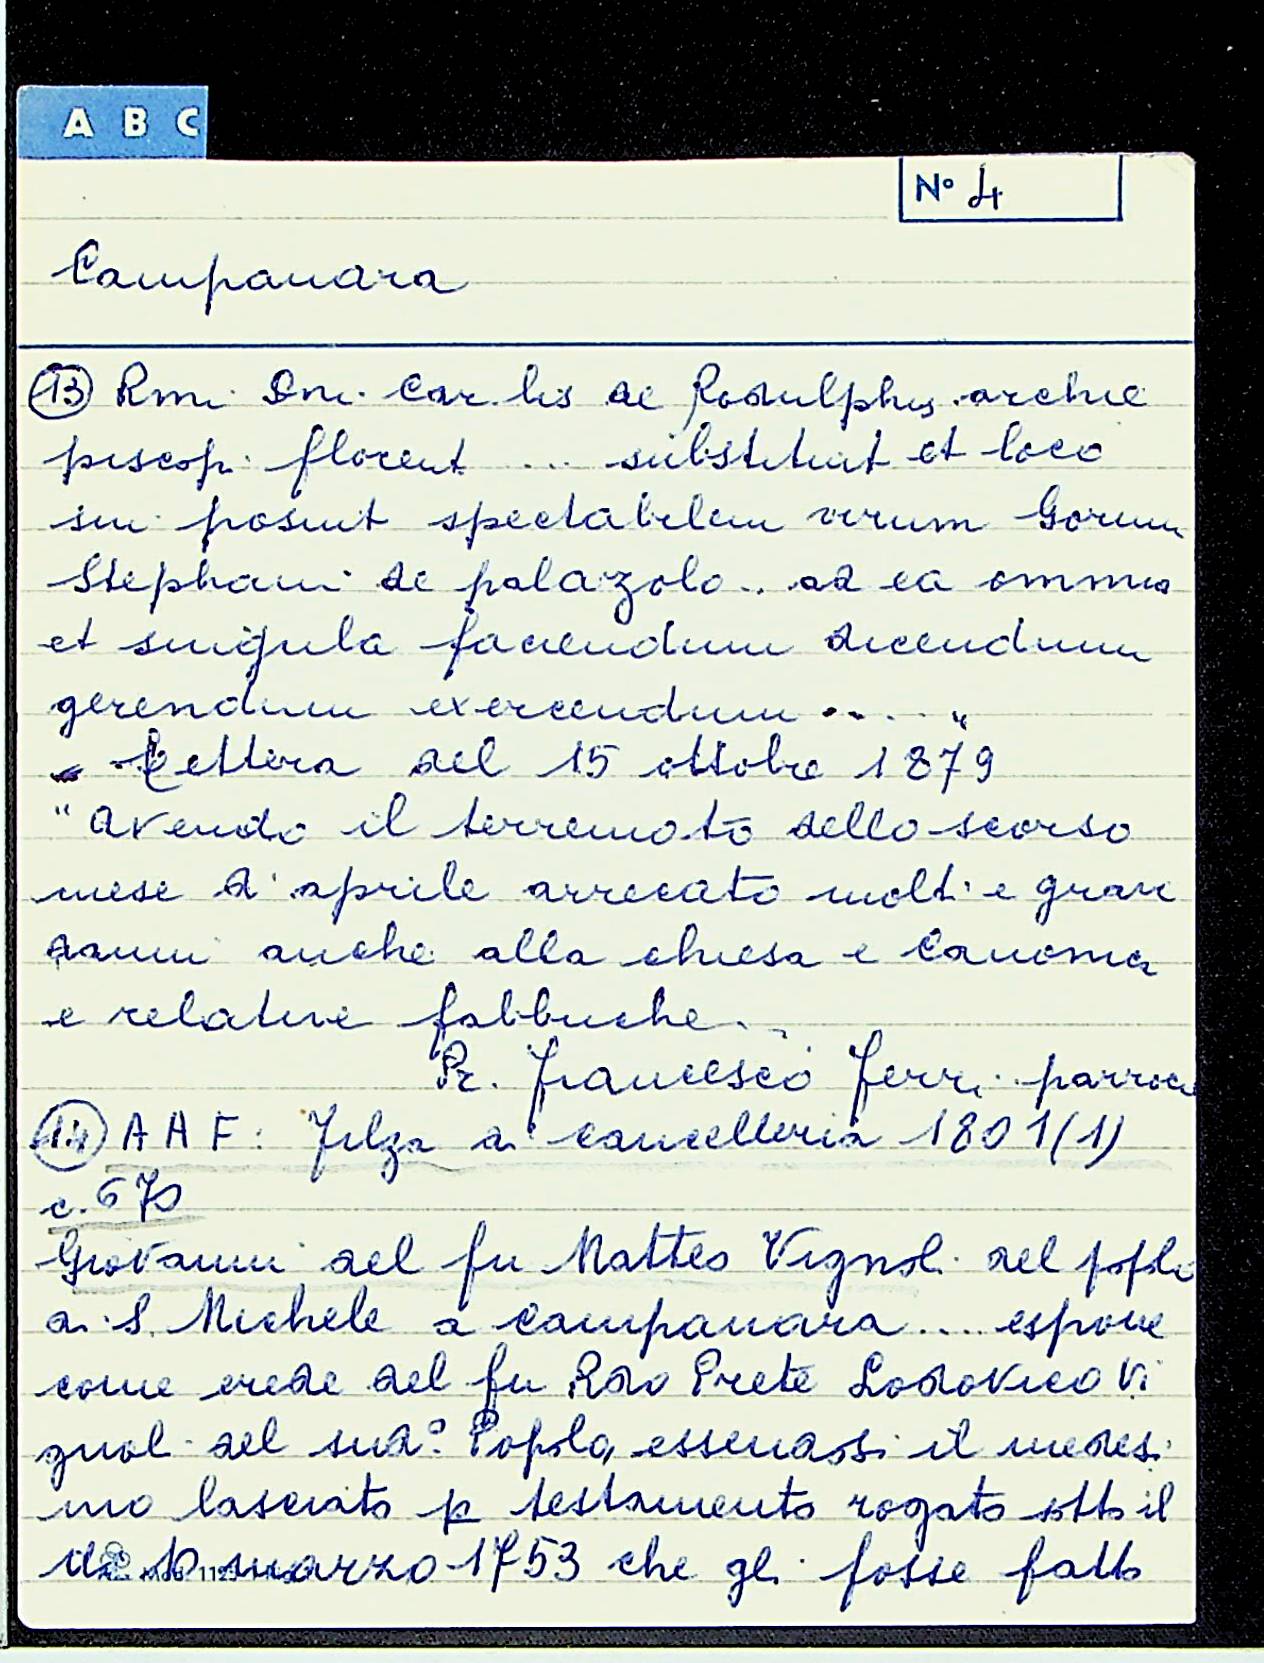 A B C
N° 4
Campanara
13 Rmi Dni. Car. lis de Rodulphis archie
piscop. florent ... substituit et loco
sui posuit spectabilem virum Gorum
Stephani de palazolo .. ad ea omnia
et singula faciendum dicendum
gerendum exercendum .... "
- Lettera del 15 ottobre 1879
"Avendo il terremoto dello scorso
mese d'aprile arrecato molti e gravi
danni anche alla chiesa e Canonica
e relative fabbriche..
Pr. Francesco Ferri parroco
14 A A F: Filza di cancelleria 1801(1)
c. 670
Giovanni del fu Matteo Vignoli del popolo
di S. Michele a Campanara .... espone
come erede del fu Rdo Prete Lodovico Vi
gnoli del sud° Popolo, essendosi il medesi
mo lasciato p testamento rogato sotto il
dì marzo 1753 che gli fosse fatto